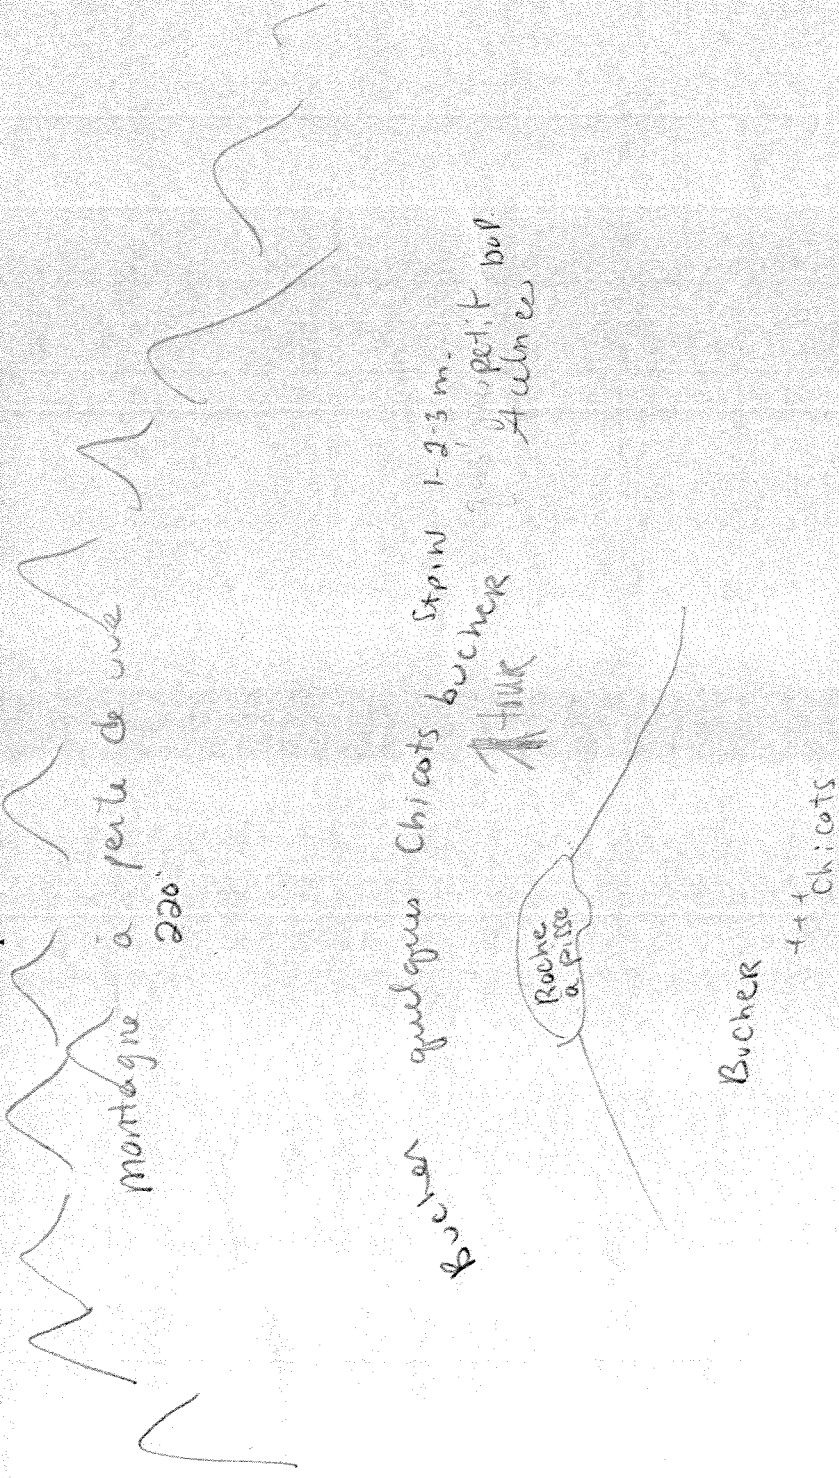 montagne à perte de vue
220'
Bucher quelques Chicots bucher Stpiw 1-2-3 m.
petit bop
4 ulnes
Roche
a pisse
Bucher
+++
Chicots